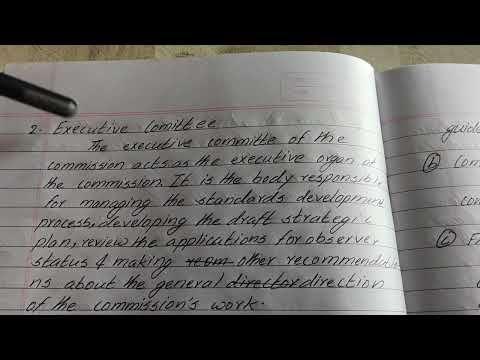 2. Executive Comittee
The executive committe of the
commission acts as the executive organ of
the commission. It is the body responsible
for managing the standards development
process, developing the draft strategic
plan, review the applications for observer
status & making other recommendatio
ns about the general director direction
of the commission's work.
guide
(b) Com
com
(c) F